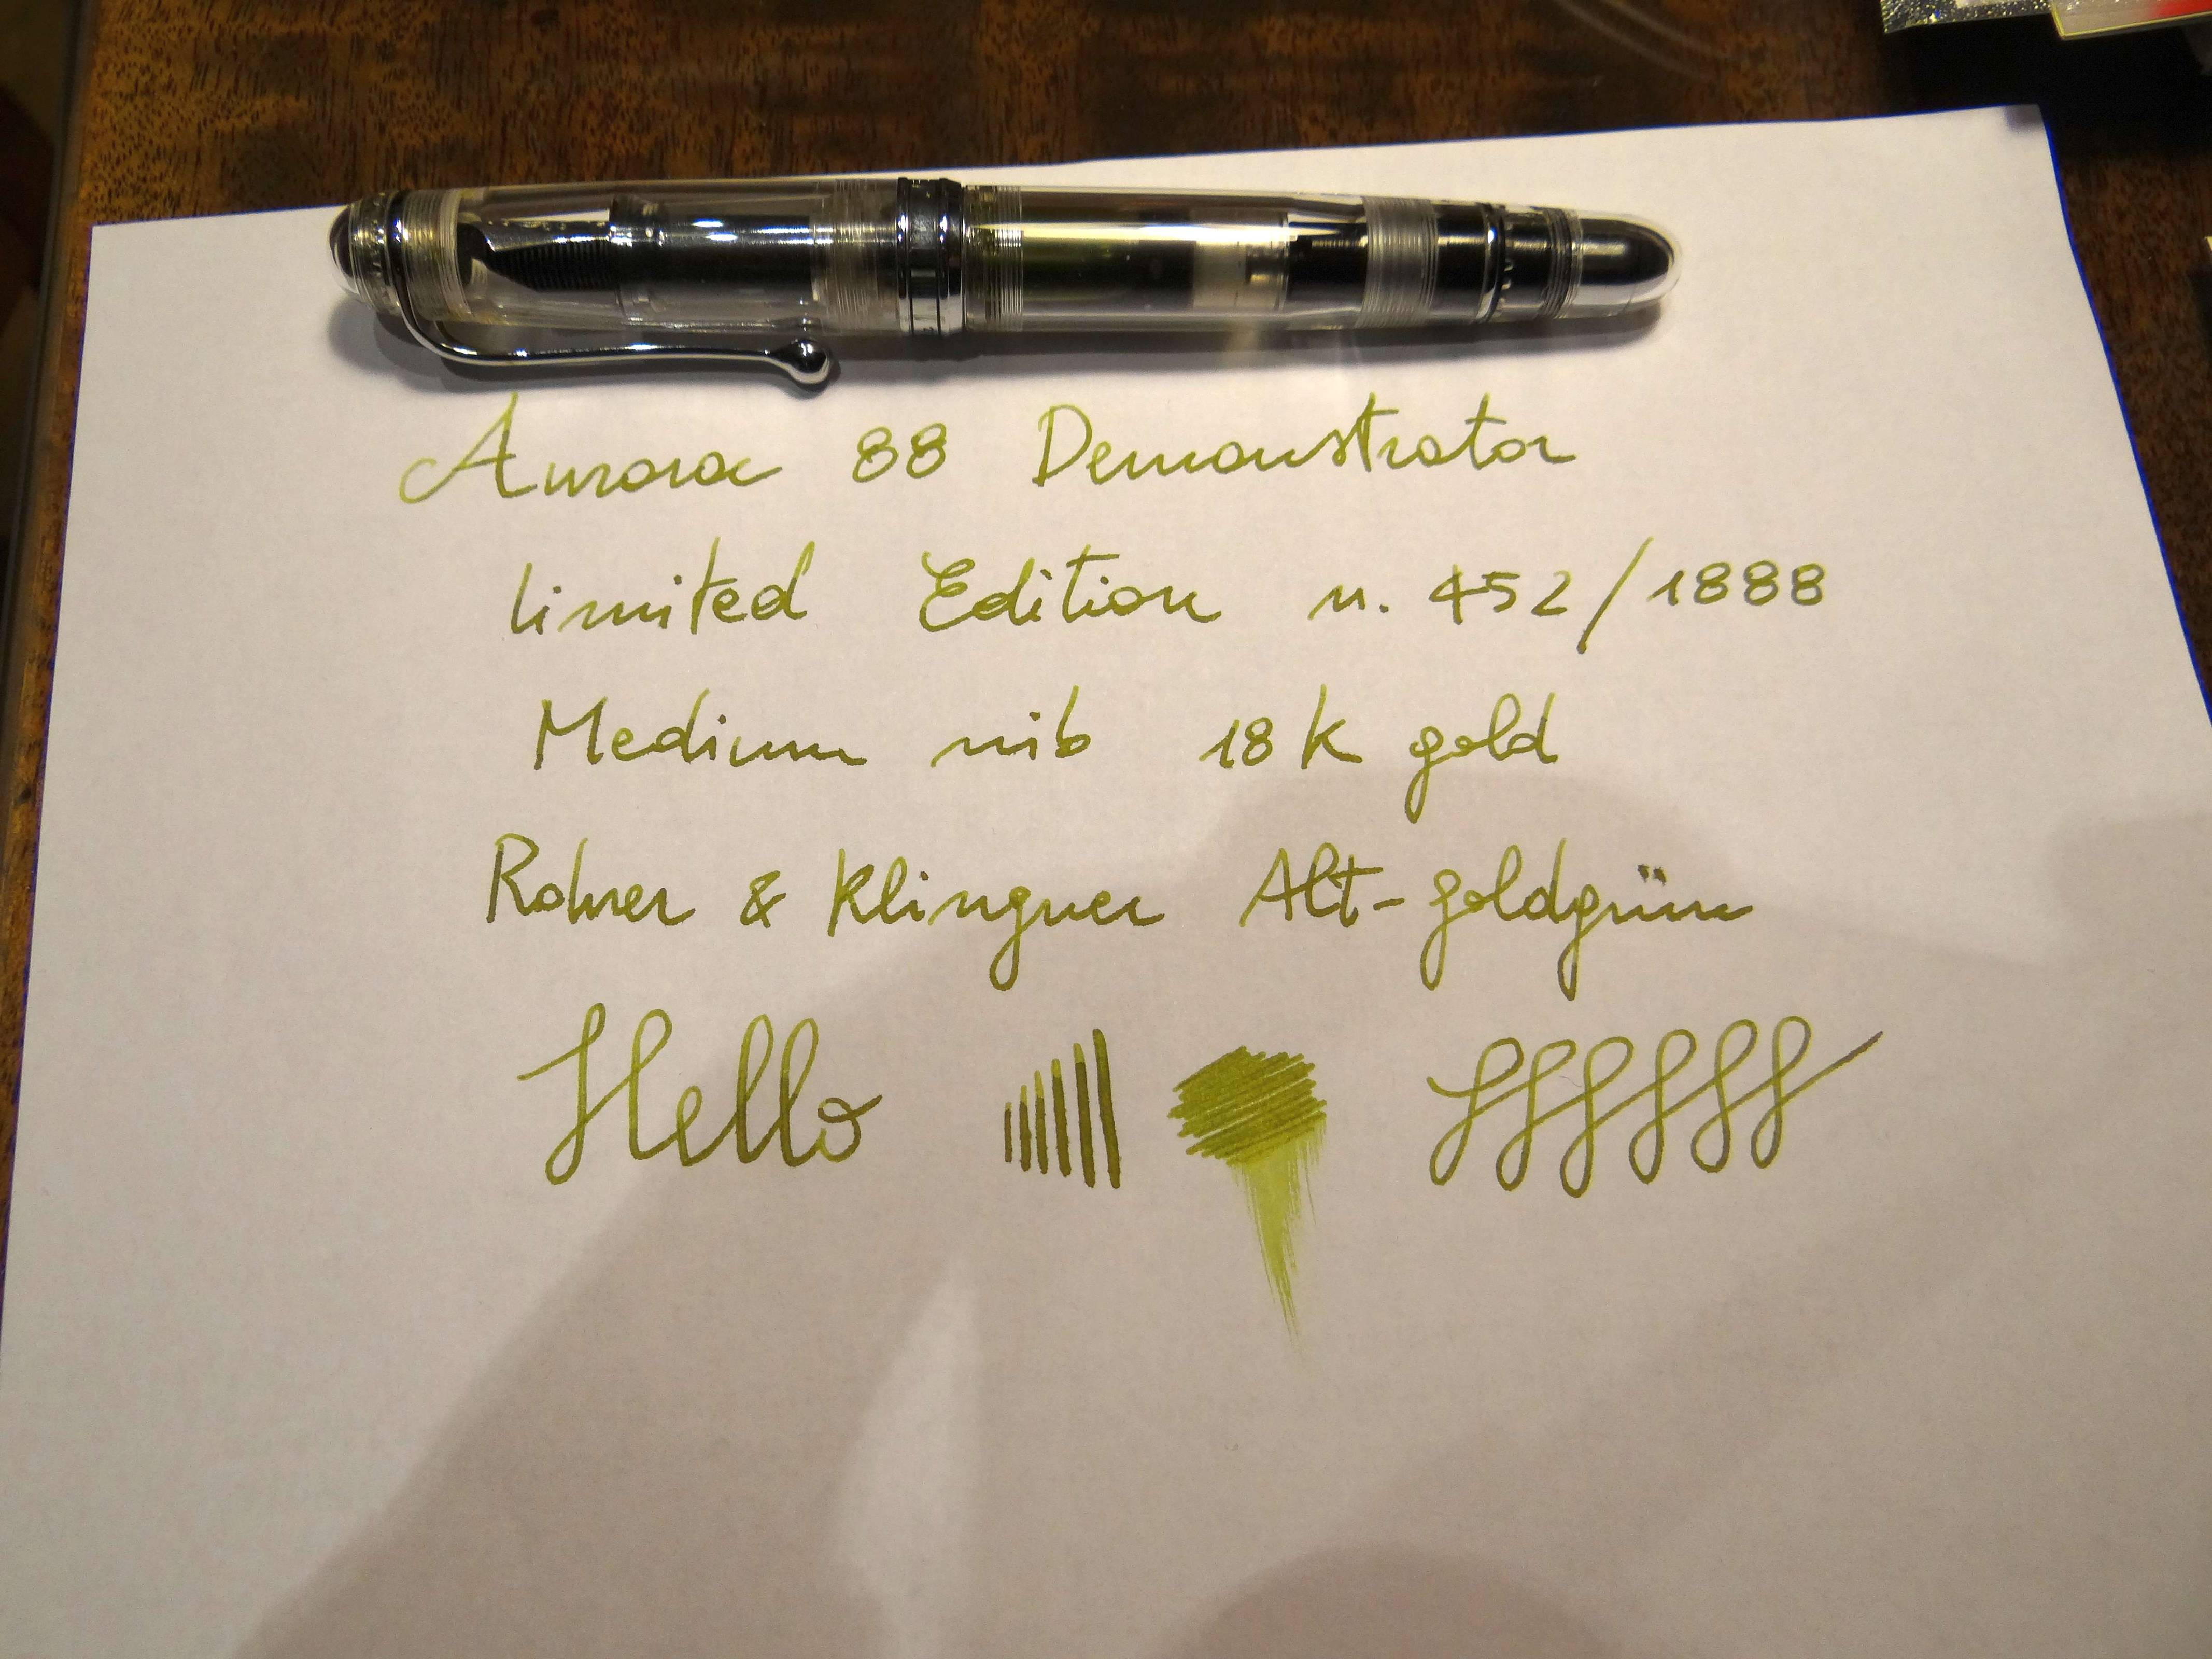 Aurora 88 Demonstrator
limited Edition n. 452/1888
Medium nib 18k gold
Rohrer & Klingner Alt-goldgrün
Hello